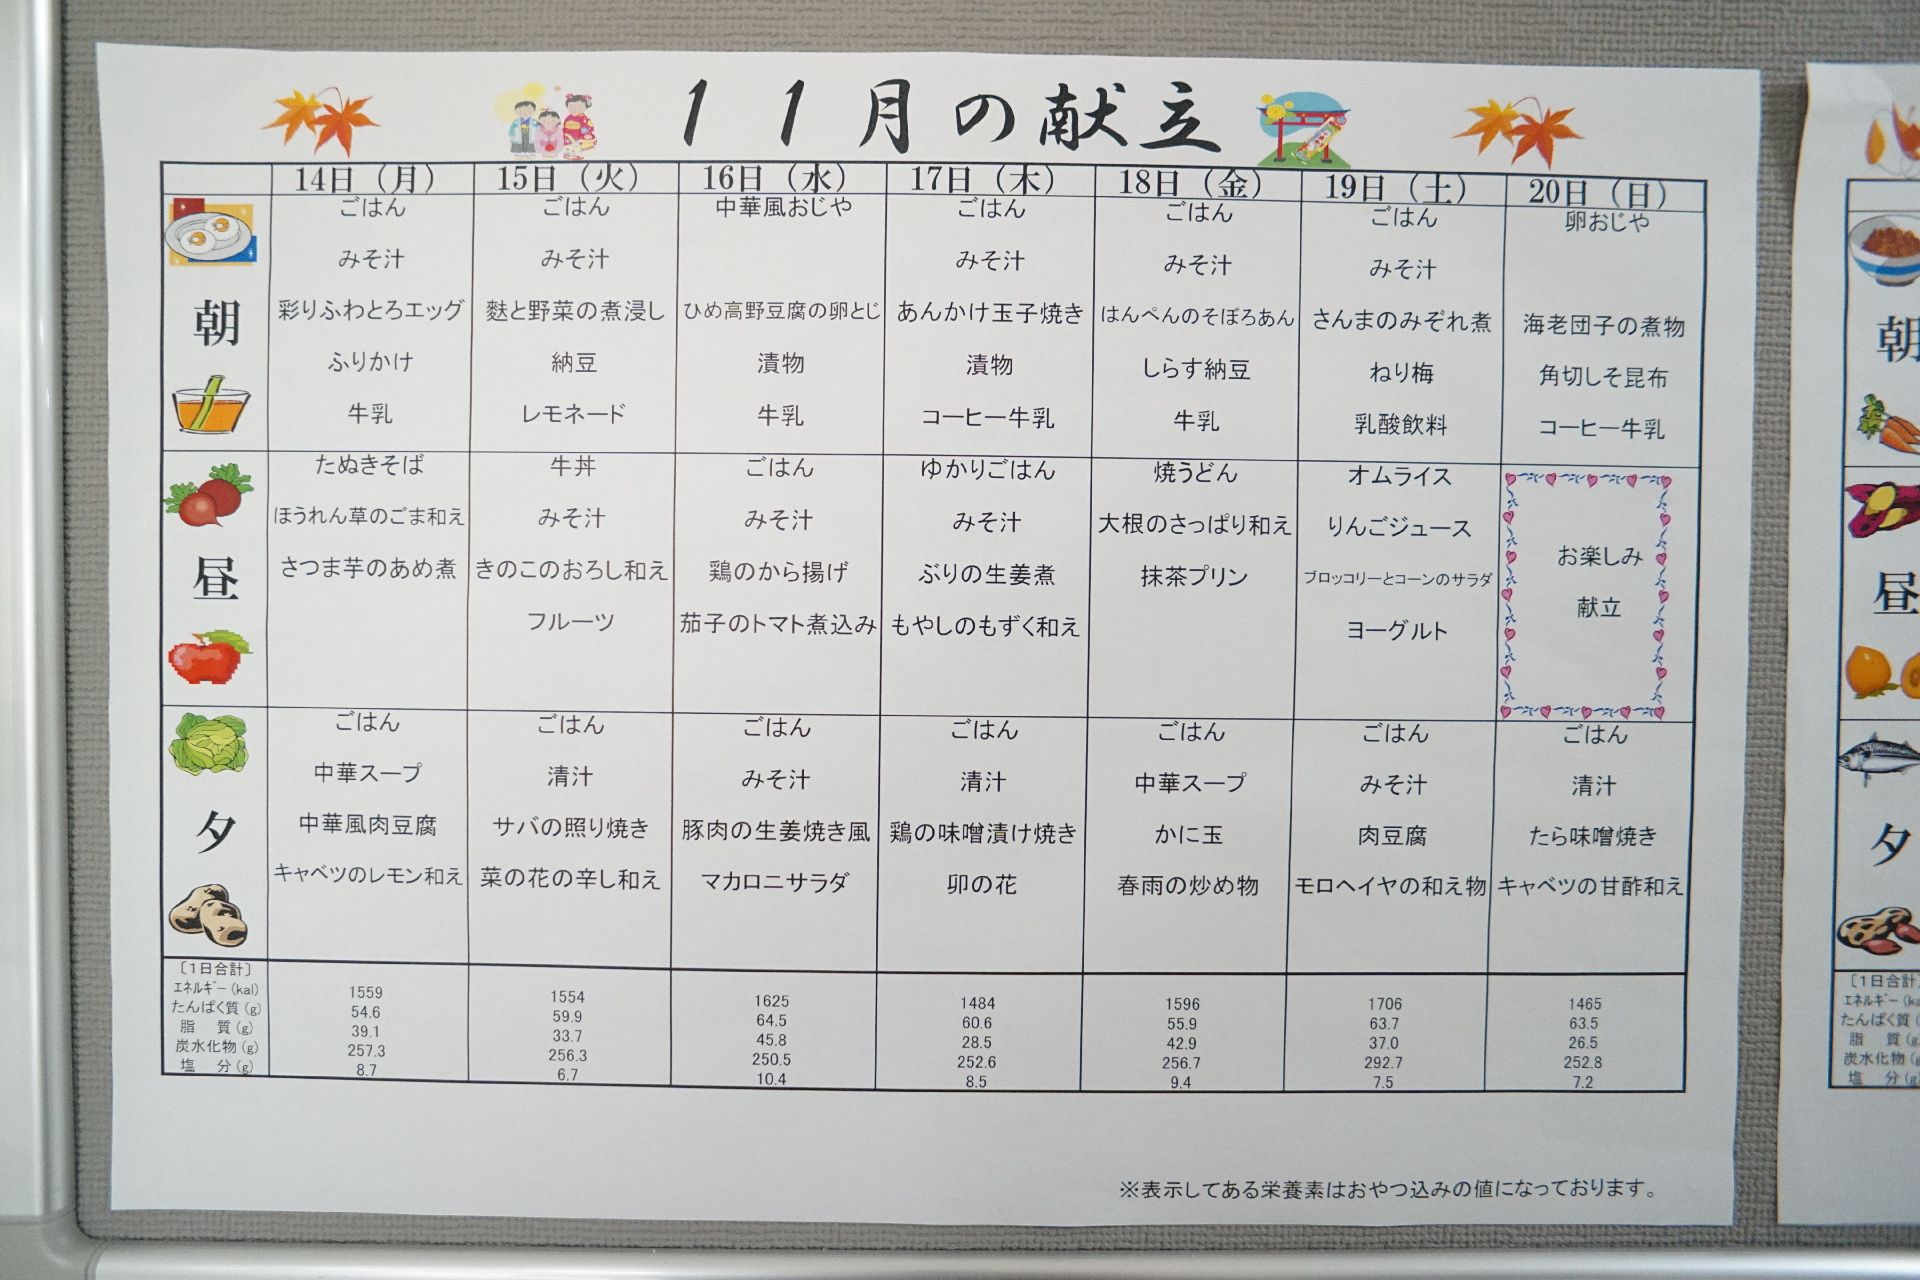 11月の献立
14日（月） 15日（火） 16日（水） 17日（木） 18日（金） 19日（土） 20日（日）
朝
ごはん ごはん 中華風おじや ごはん ごはん ごはん 卵おじや
みそ汁 みそ汁 みそ汁 みそ汁 みそ汁
彩りふわとろエッグ 麩と野菜の煮浸し ひめ高野豆腐の卵とじ あんかけ玉子焼き はんぺんのそぼろあん さんまのみぞれ煮 海老団子の煮物
ふりかけ 納豆 漬物 漬物 しらす納豆 ねり梅 角切しそ昆布
牛乳 レモネード 牛乳 コーヒー牛乳 牛乳 乳酸飲料 コーヒー牛乳
昼
たぬきそば 牛丼 ごはん ゆかりごはん 焼うどん オムライス お楽しみ
ほうれん草のごま和え みそ汁 みそ汁 みそ汁 大根のさっぱり和え りんごジュース 献立
さつま芋のあめ煮 きのこのおろし和え 鶏のから揚げ ぶりの生姜煮 抹茶プリン ブロッコリーとコーンのサラダ
フルーツ 茄子のトマト煮込み もやしのもずく和え ヨーグルト
夕
ごはん ごはん ごはん ごはん ごはん ごはん ごはん
中華スープ 清汁 みそ汁 清汁 中華スープ みそ汁 清汁
中華風肉豆腐 サバの照り焼き 豚肉の生姜焼き風 鶏の味噌漬け焼き かに玉 肉豆腐 たら味噌焼き
キャベツのレモン和え 菜の花の辛し和え マカロニサラダ 卯の花 春雨の炒め物 モロヘイヤの和え物 キャベツの甘酢和え
〔1日合計〕
エネルギー(kal) 1559 1554 1625 1484 1596 1706 1465
たんぱく質(g) 54.6 59.9 64.5 60.6 55.9 63.7 63.5
脂　質(g) 39.1 33.7 45.8 28.5 42.9 37.0 26.5
炭水化物(g) 257.3 256.3 250.5 252.6 256.7 292.7 252.8
塩　分(g) 8.7 6.7 10.4 8.5 9.4 7.5 7.2
※表示してある栄養素はおやつ込みの値になっております。
朝
昼
夕
〔1日合計
エネルギー(ka
たんぱく質(
脂　質(g
炭水化物(g
塩　分(g